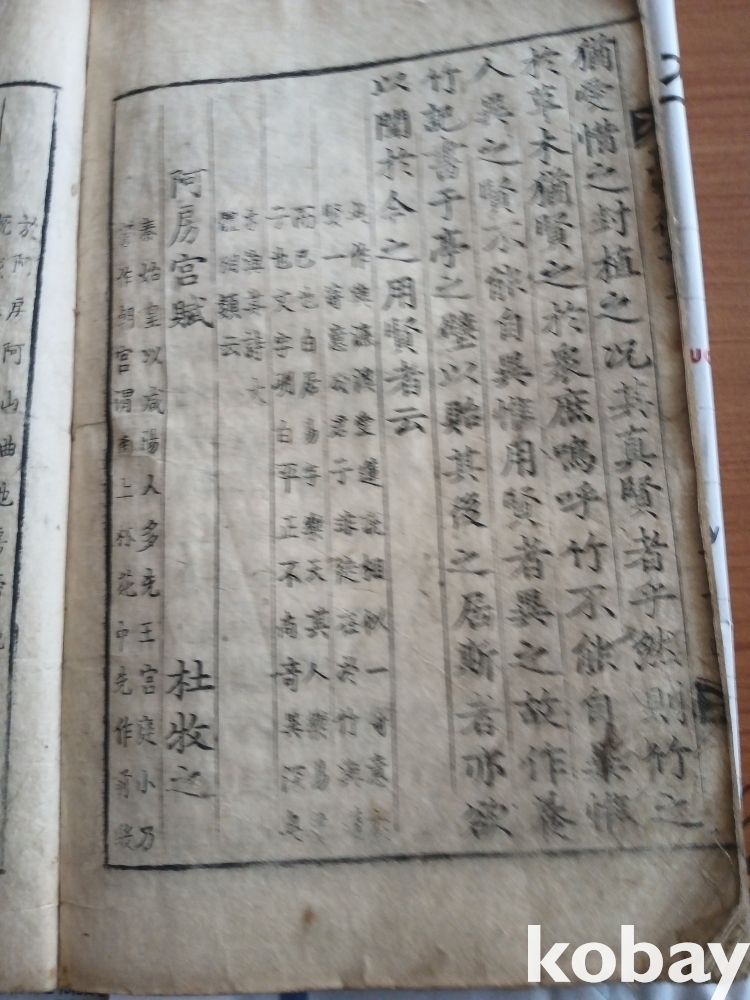 猶愛惜之封植之况其真賢者乎然則竹之
於草木猶賢之於衆庶嗚呼竹不能自異惟
人異之賢不能自異惟用賢者異之故作養
竹記書于亭之壁以貽其後之居斯者亦欲
以聞於今之用賢者云
作與濂溪愛蓮說相似一寄意
賢一寄意於君子非徒在於竹與蓮
而已也白居易字樂天其人樂易君
子也文字明白平正不尚奇異深
其詩大
體相類云
阿房宮賦 杜牧之
秦始皇以咸陽人多先王宮庭小乃
營作朝宮渭南上林苑中先作前殿
於阿房阿山曲也
kobay